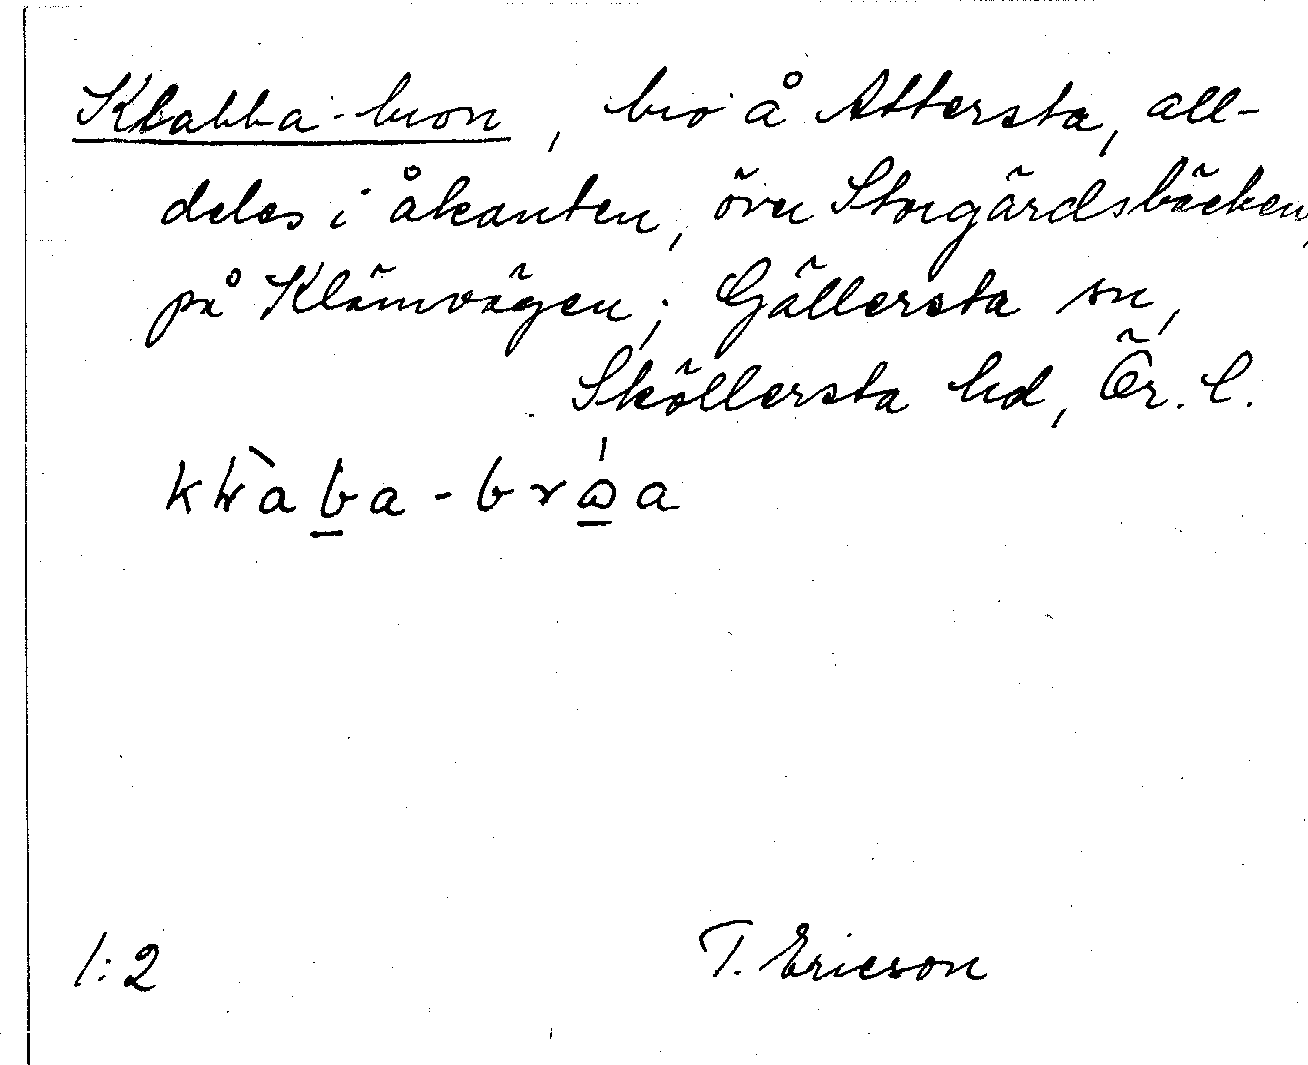 Klabba-bron, bro å Attersta, all-
deles i åkanten, över Storgärdsbäcken,
på Klämvägen; Gällersta sn,
Sköllersta hd, Ör. l.
1:2 T. Ericson